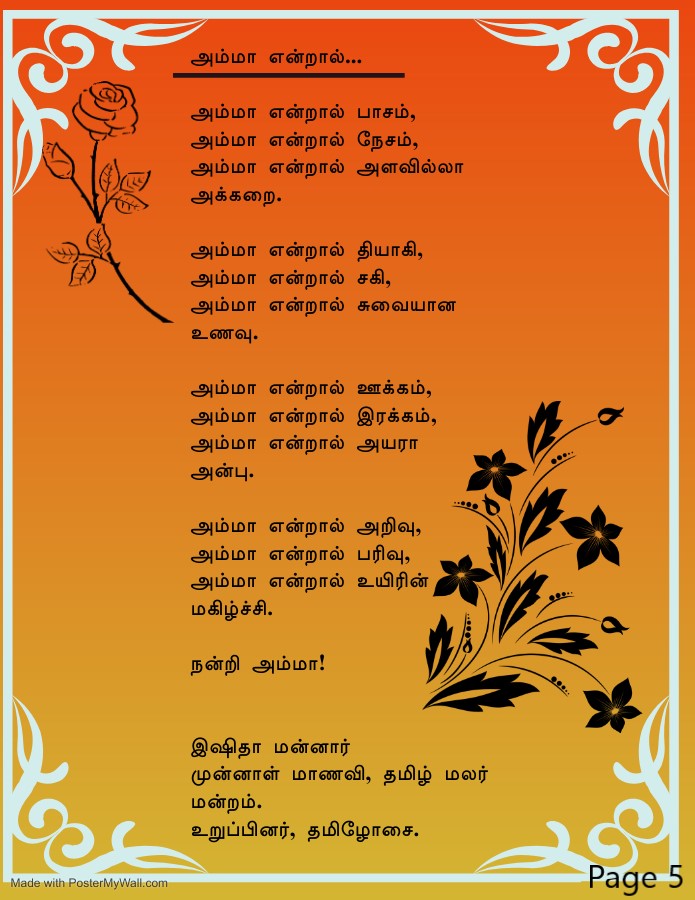 அம்மா என்றால்...
அம்மா என்றால் பாசம்,
அம்மா என்றால் நேசம்,
அம்மா என்றால் அளவில்லா
அக்கறை.
அம்மா என்றால் தியாகி,
அம்மா என்றால் சகி,
அம்மா என்றால் சுவையான
உணவு.
அம்மா என்றால் ஊக்கம்,
அம்மா என்றால் இரக்கம்,
அம்மா என்றால் அயரா
அன்பு.
அம்மா என்றால் அறிவு,
அம்மா என்றால் பரிவு,
அம்மா என்றால் உயிரின்
மகிழ்ச்சி.
நன்றி அம்மா!
இஷிதா மன்னார்
முன்னாள் மாணவி, தமிழ் மலர்
மன்றம்.
உறுப்பினர், தமிழோசை.
Made with PosterMyWall.com
Page 5